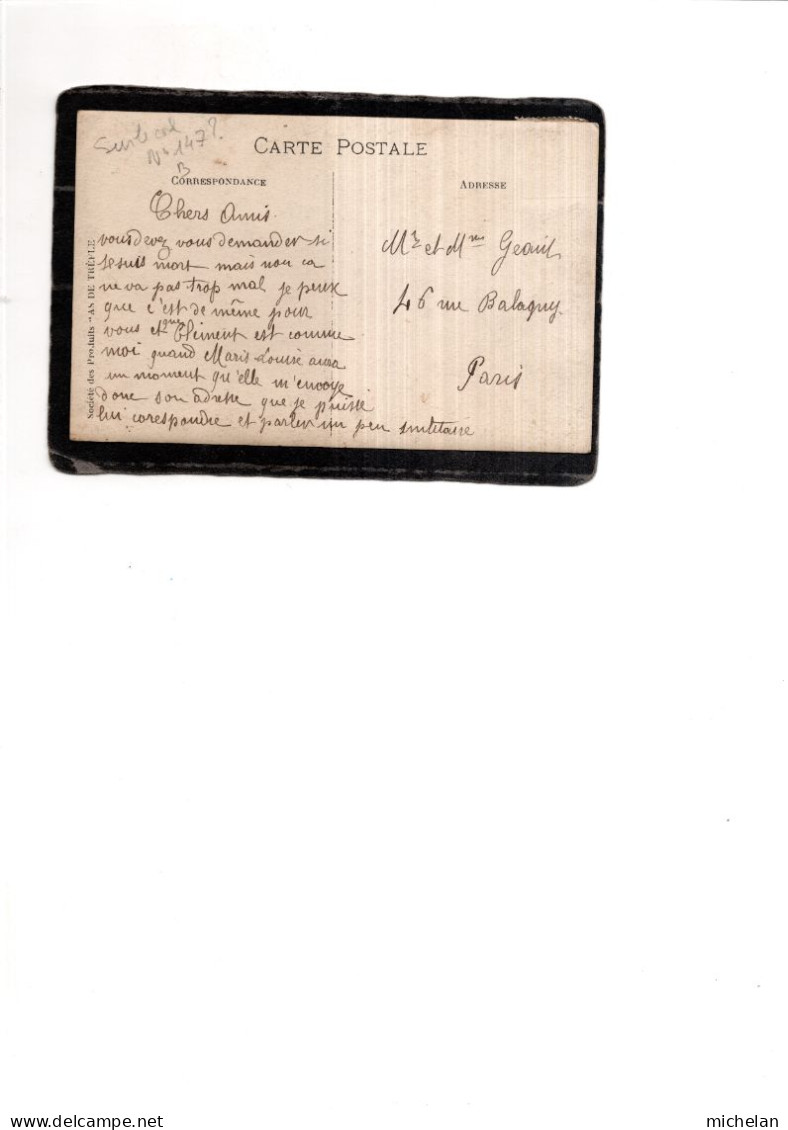 Sur le col
N° 147?
B
CARTE POSTALE
CORRESPONDANCE
ADRESSE
Chers Amis
vous devez vous demander si
je suis mort mais non ca
ne va pas trop mal je peux
que c'est de même pour
vous et Clement est comme
moi quand Marie Louise aura
un moment qu'elle m'envoye
donc son adresse que je puisse
lui corespondre et parler un peu
Mr et Mme
46 rue Balagny
Paris
Société des Produits "AS DE TRÈFLE
delcampe.net
michelan